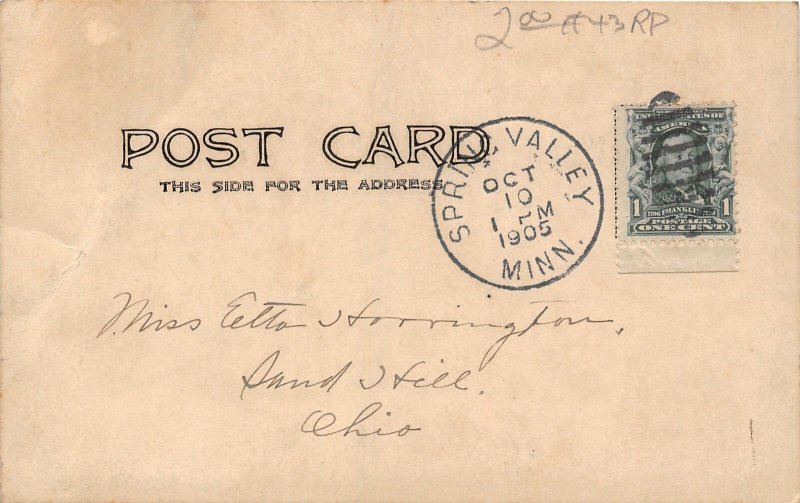 2.00 #43 RP
POST CARD
THIS SIDE FOR THE ADDRESS
SPRING VALLEY
OCT
10
1 PM
1905
MINN.
UNITED STATES OF
AMERICA
1 1
FRANKLIN
POSTAGE
ONE CENT
Miss Etta Horrington,
Sand Hill,
Ohio